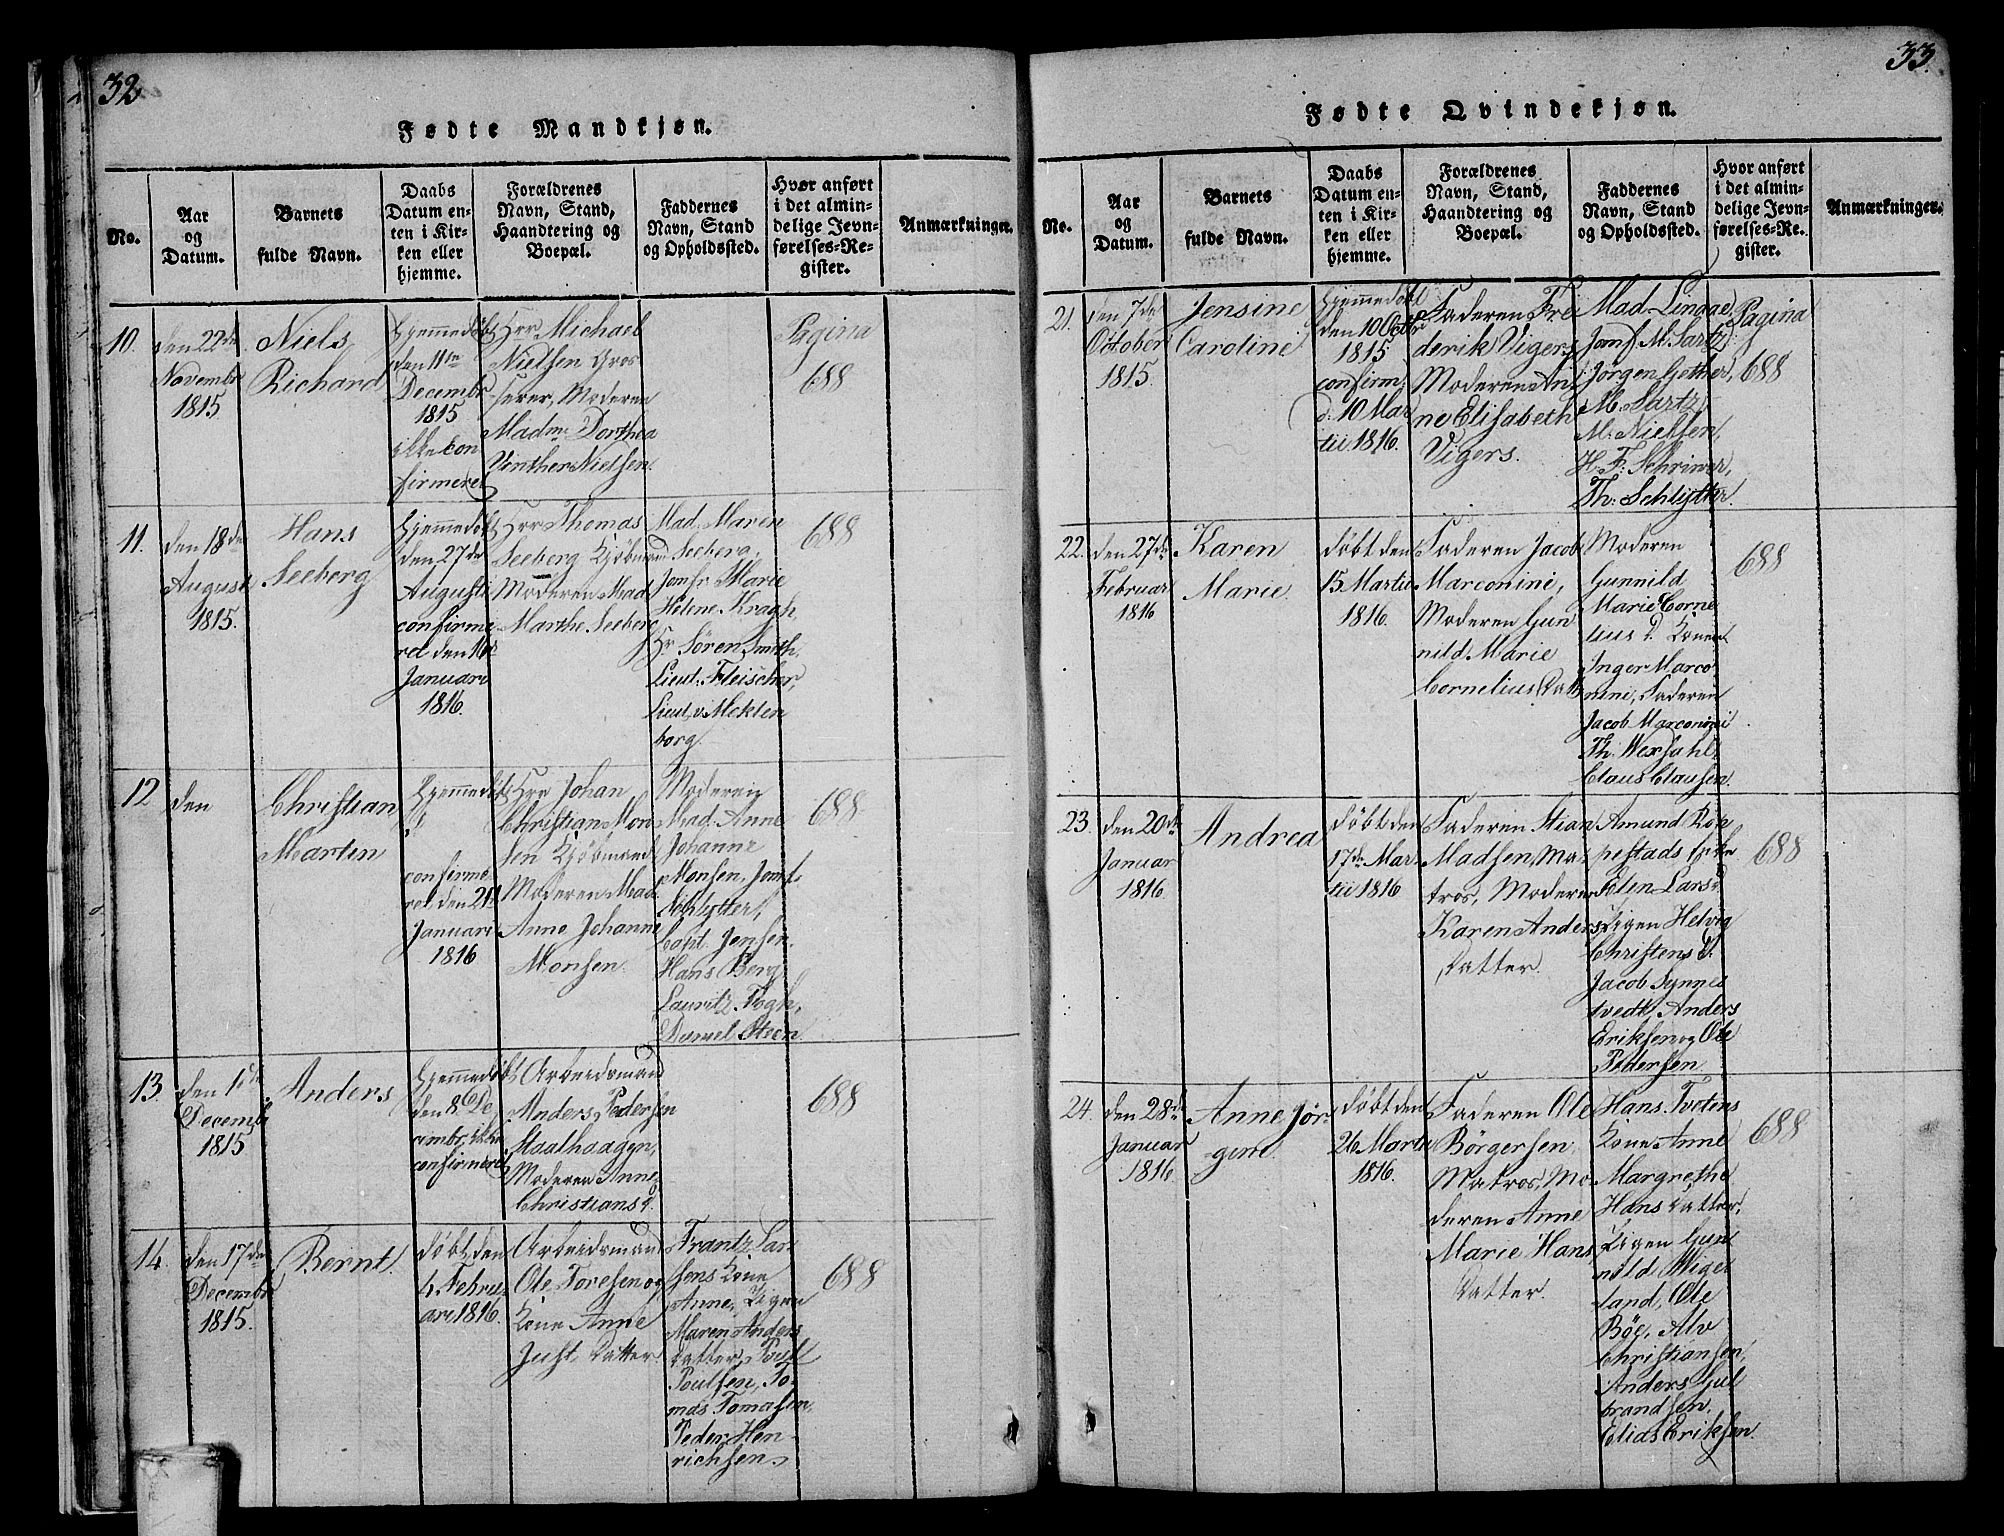 32
Fødte Mandkjøn.
No.
Aar
og
Datum.
Barnets
fulde Navn.
Daabs
Datum en-
ten i Kir-
ken eller
hjemme.
Forældrenes
Navn, Stand,
Haandtering og
Boepæl.
Faddernes
Navn, Stand
og Opholdssted.
Hvor anført
i det almin-
delige Jevn-
førelses-Re-
gister.
Anmærkninger.
10.
den 22de
Novembr
1815
Niels
Richard
Hjemmedøbt
den 11te
Decembr
1815
ikke con
firmeret
Hrr Michael
Nielsen Gros
serer, Moderen
Madme Dorthea
Vinther Nielsen
Pagina
688
11.
den 18de
August
1815.
Hans
Seeberg
Hjemmedøbt
den 27de
Augusti
confirme
ret den 16de
Januari
1816.
Hrr Thomas
Seeberg Kjøbmand
Moderen Mad
Marthe Seeberg
Mad. Maren
Seeberg,
Jomfr Marie
Helene Kragh,
Hr Søren Smith,
Lieut. Fleischer,
Lieut. v. Meklen
borg.
688
12
den
Christian
Marten
Hjemmedøbt
"
confirme
ret den 21de
Januari
1816
Hrr Johan
Christian Mon
sen Kjøbmand
Moderen Mad.
Anne Johanne
Monsen.
Moderen
Mad. Anne
Johanne
Monsen, Jomf.
Schlytter,
Capt. Jensen,
Hans Berg
Lauritz Fogh,
Daniel Steen
688
13.
den 1de
Decemb
1815
Anders
Hjemmedøbt
den 8. De
cembr, ikke
confirmeret
Arbeidsmand
Anders Pedersen
Staalhaagen,
Moderen Anne
Christians d.
688
14.
den 17de
Decembr
1815.
Bernt.
døbt den
4. Febru
ari 1816.
Arbeidsmand
Ole Toresen og
Kone Anne
Just. Datter.
Frantz Lar
sens Kone
Anne, Pigen
Maren Anders
Datter, Poul
Poulsen, To
mas Tomasen,
Peder Hen
richsen.
688
33.
Fødte Qvindekjøn.
No.
Aar
og
Datum.
Barnets
fulde Navn.
Daabs
Datum en-
ten i Kir-
ken eller
hjemme.
Forældrenes
Navn, Stand,
Haandtering og
Boepæl.
Faddernes
Navn, Stand
og Opholdssted.
Hvor anført
i det almin-
delige Jevn-
førelses-Re-
gister.
Anmærkninger.
21.
den 7de
October
1815.
Jensine
Caroline
Hjemmedøbt
den 10 Octbr
1815
confirm.
d. 10 Mar
tii 1816.
Faderen Fre
derik Vigers,
Moderen An
ne Elisabeth
Vigers.
Mad. Lingae,
Jomf M. Sartz,
Jørgen Gether,
M. Sartz,
M. Nielsen,
H. F. Schriwer,
Th. Schlytter.
Pagina
688
22.
den 27de
Februar
1816
Karen
Marie.
døbt den
15. Martii
1816.
Faderen Jacob
Marconini,
Moderen Gun
nild Marie
Cornelius Datt.
Moderen
Gunnild
Marie Corne
lius d. Konen
Inger Marco
nini, Faderen
Jacob Marconini
Th. Wexsahl
Claus Clausen
688
23.
den 20de
Januar
1816.
Andrea
døbt den
17de Mar
tii 1816
Faderen Stian
Madsen, Ma
tros, Moderen
Karen Anders
Datter.
Amund Røn
pestads
Lars d.
Pigen Helvig
Christens d.
Jacob Synnes
tvedt, Anders
Eriksen og Ole
Pedersen
688
24.
den 28de
Januar
1816
Anne Jør-
gine.
døbt den
26. Martii
1816.
Faderen Ole
Børgersen,
Matros, Mo
deren Anne
Marie Hans
Datter.
Hans Tvetens
Kone Anne
Margrethe
Hans Datter,
Pigen Gun
nild Wige
land, Ole
Bøe, Alv
Christiansen,
Anders Gul
brandsen,
Elias Eriksen.
688